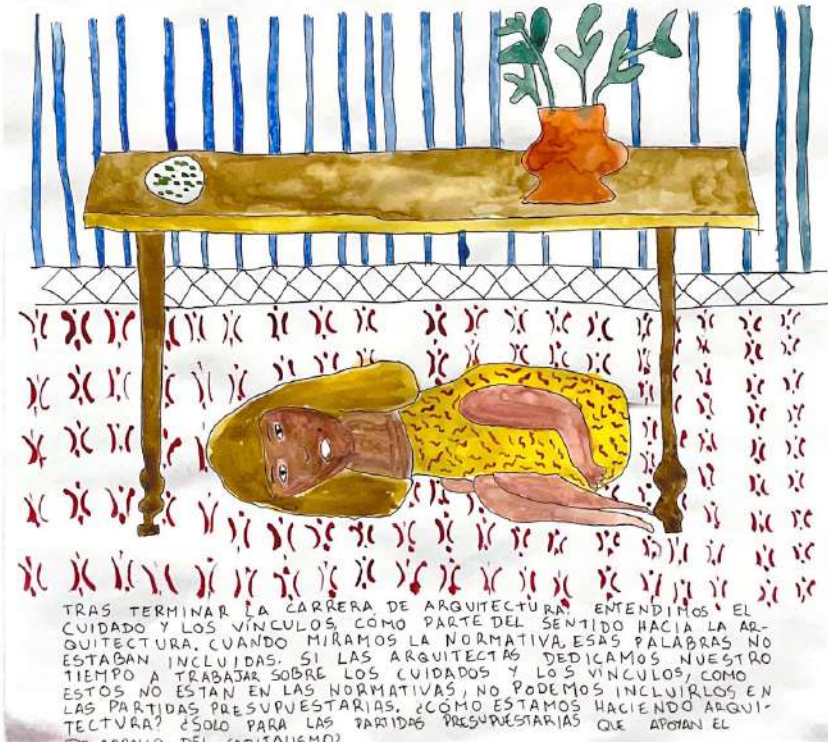 TRAS TERMINAR LA CARRERA DE ARQUITECTURA, ENTENDIMOS EL
CUIDADO Y LOS VÍNCULOS, CÓMO PARTE DEL SENTIDO HACIA LA AR-
QUITECTURA. CUANDO MIRAMOS LA NORMATIVA, ESAS PALABRAS NO
ESTABAN INCLUIDAS. SI LAS ARQUITECTAS DEDICAMOS NUESTRO
TIEMPO A TRABAJAR SOBRE LOS CUIDADOS Y LOS VÍNCULOS, COMO
ESTOS NO ESTAN EN LAS NORMATIVAS, NO PODEMOS INCLUIRLOS EN
LAS PARTIDAS PRESUPUESTARIAS. ¿CÓMO ESTAMOS HACIENDO ARQUI-
TECTURA? ¿SOLO PARA LAS PARTIDAS PRESUPUESTARIAS QUE APOYAN EL
DEL CAPITALISMO?